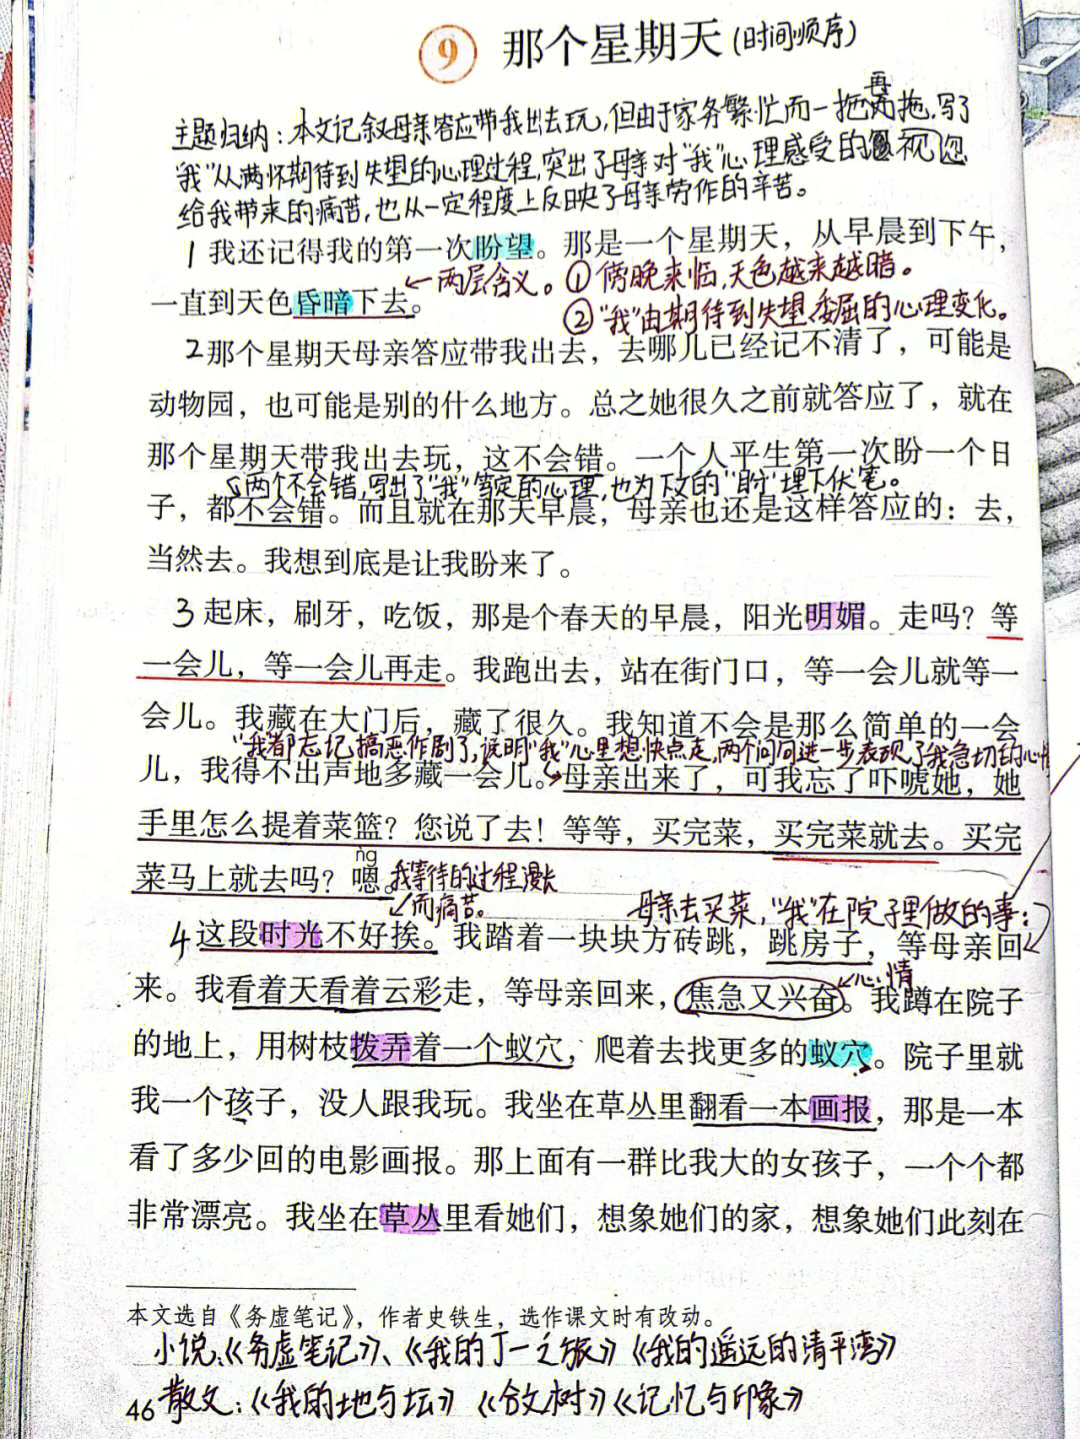 9 那个星期天(时间顺序)
主题归纳:本文记叙母亲答应带我出去玩,但由于家务繁忙而一拖再拖,写了
"我"从满怀期待到失望的心理过程,突出了母亲对"我"心理感受的忽视
给我带来的痛苦,也从一定程度上反映了母亲劳作的辛苦。
1 我还记得我的第一次盼望。那是一个星期天,从早晨到下午,
一直到天色昏暗下去。
←两层含义。①傍晚来临,天色越来越暗。
②"我"由期待到失望、委屈的心理变化。
2 那个星期天母亲答应带我出去,去哪儿已经记不清了,可能是
动物园,也可能是别的什么地方。总之她很久之前就答应了,就在
那个星期天带我出去玩,这不会错。一个人平生第一次盼一个日
两个不会错,写出了"我"笃定的心理,也为下文的"盼"埋下伏笔。
子,都不会错。而且就在那天早晨,母亲也还是这样答应的:去,
当然去。我想到底是让我盼来了。
3 起床,刷牙,吃饭,那是个春天的早晨,阳光明媚。走吗?等
一会儿,等一会儿再走。我跑出去,站在街门口,等一会儿就等一
会儿。我藏在大门后,藏了很久。我知道不会是那么简单的一会
"我都忘记搞恶作剧了,说明"我"心里想快点走,两个问句进一步表现了我急切的心情
儿,我得不出声地多藏一会儿。母亲出来了,可我忘了吓唬她,她
手里怎么提着菜篮?您说了去!等等,买完菜,买完菜就去。买完
ǹg
菜马上就去吗?嗯。
我等待的过程漫长
而痛苦。
母亲去买菜,"我"在院子里做的事:
4 这段时光不好挨。我踏着一块块方砖跳,跳房子,等母亲回
来。我看着天看着云彩走,等母亲回来,焦急又兴奋。我蹲在院子
←心情
的地上,用树枝拨弄着一个蚁穴,爬着去找更多的蚁穴。院子里就
我一个孩子,没人跟我玩。我坐在草丛里翻看一本画报,那是一本
看了多少回的电影画报。那上面有一群比我大的女孩子,一个个都
非常漂亮。我坐在草丛里看她们,想象她们的家,想象她们此刻在
本文选自《务虚笔记》,作者史铁生,选作课文时有改动。
小说:《务虚笔记》、《我的丁一之旅》《我的遥远的清平湾》
46 散文:《我的地与坛》《合欢树》《记忆与印象》